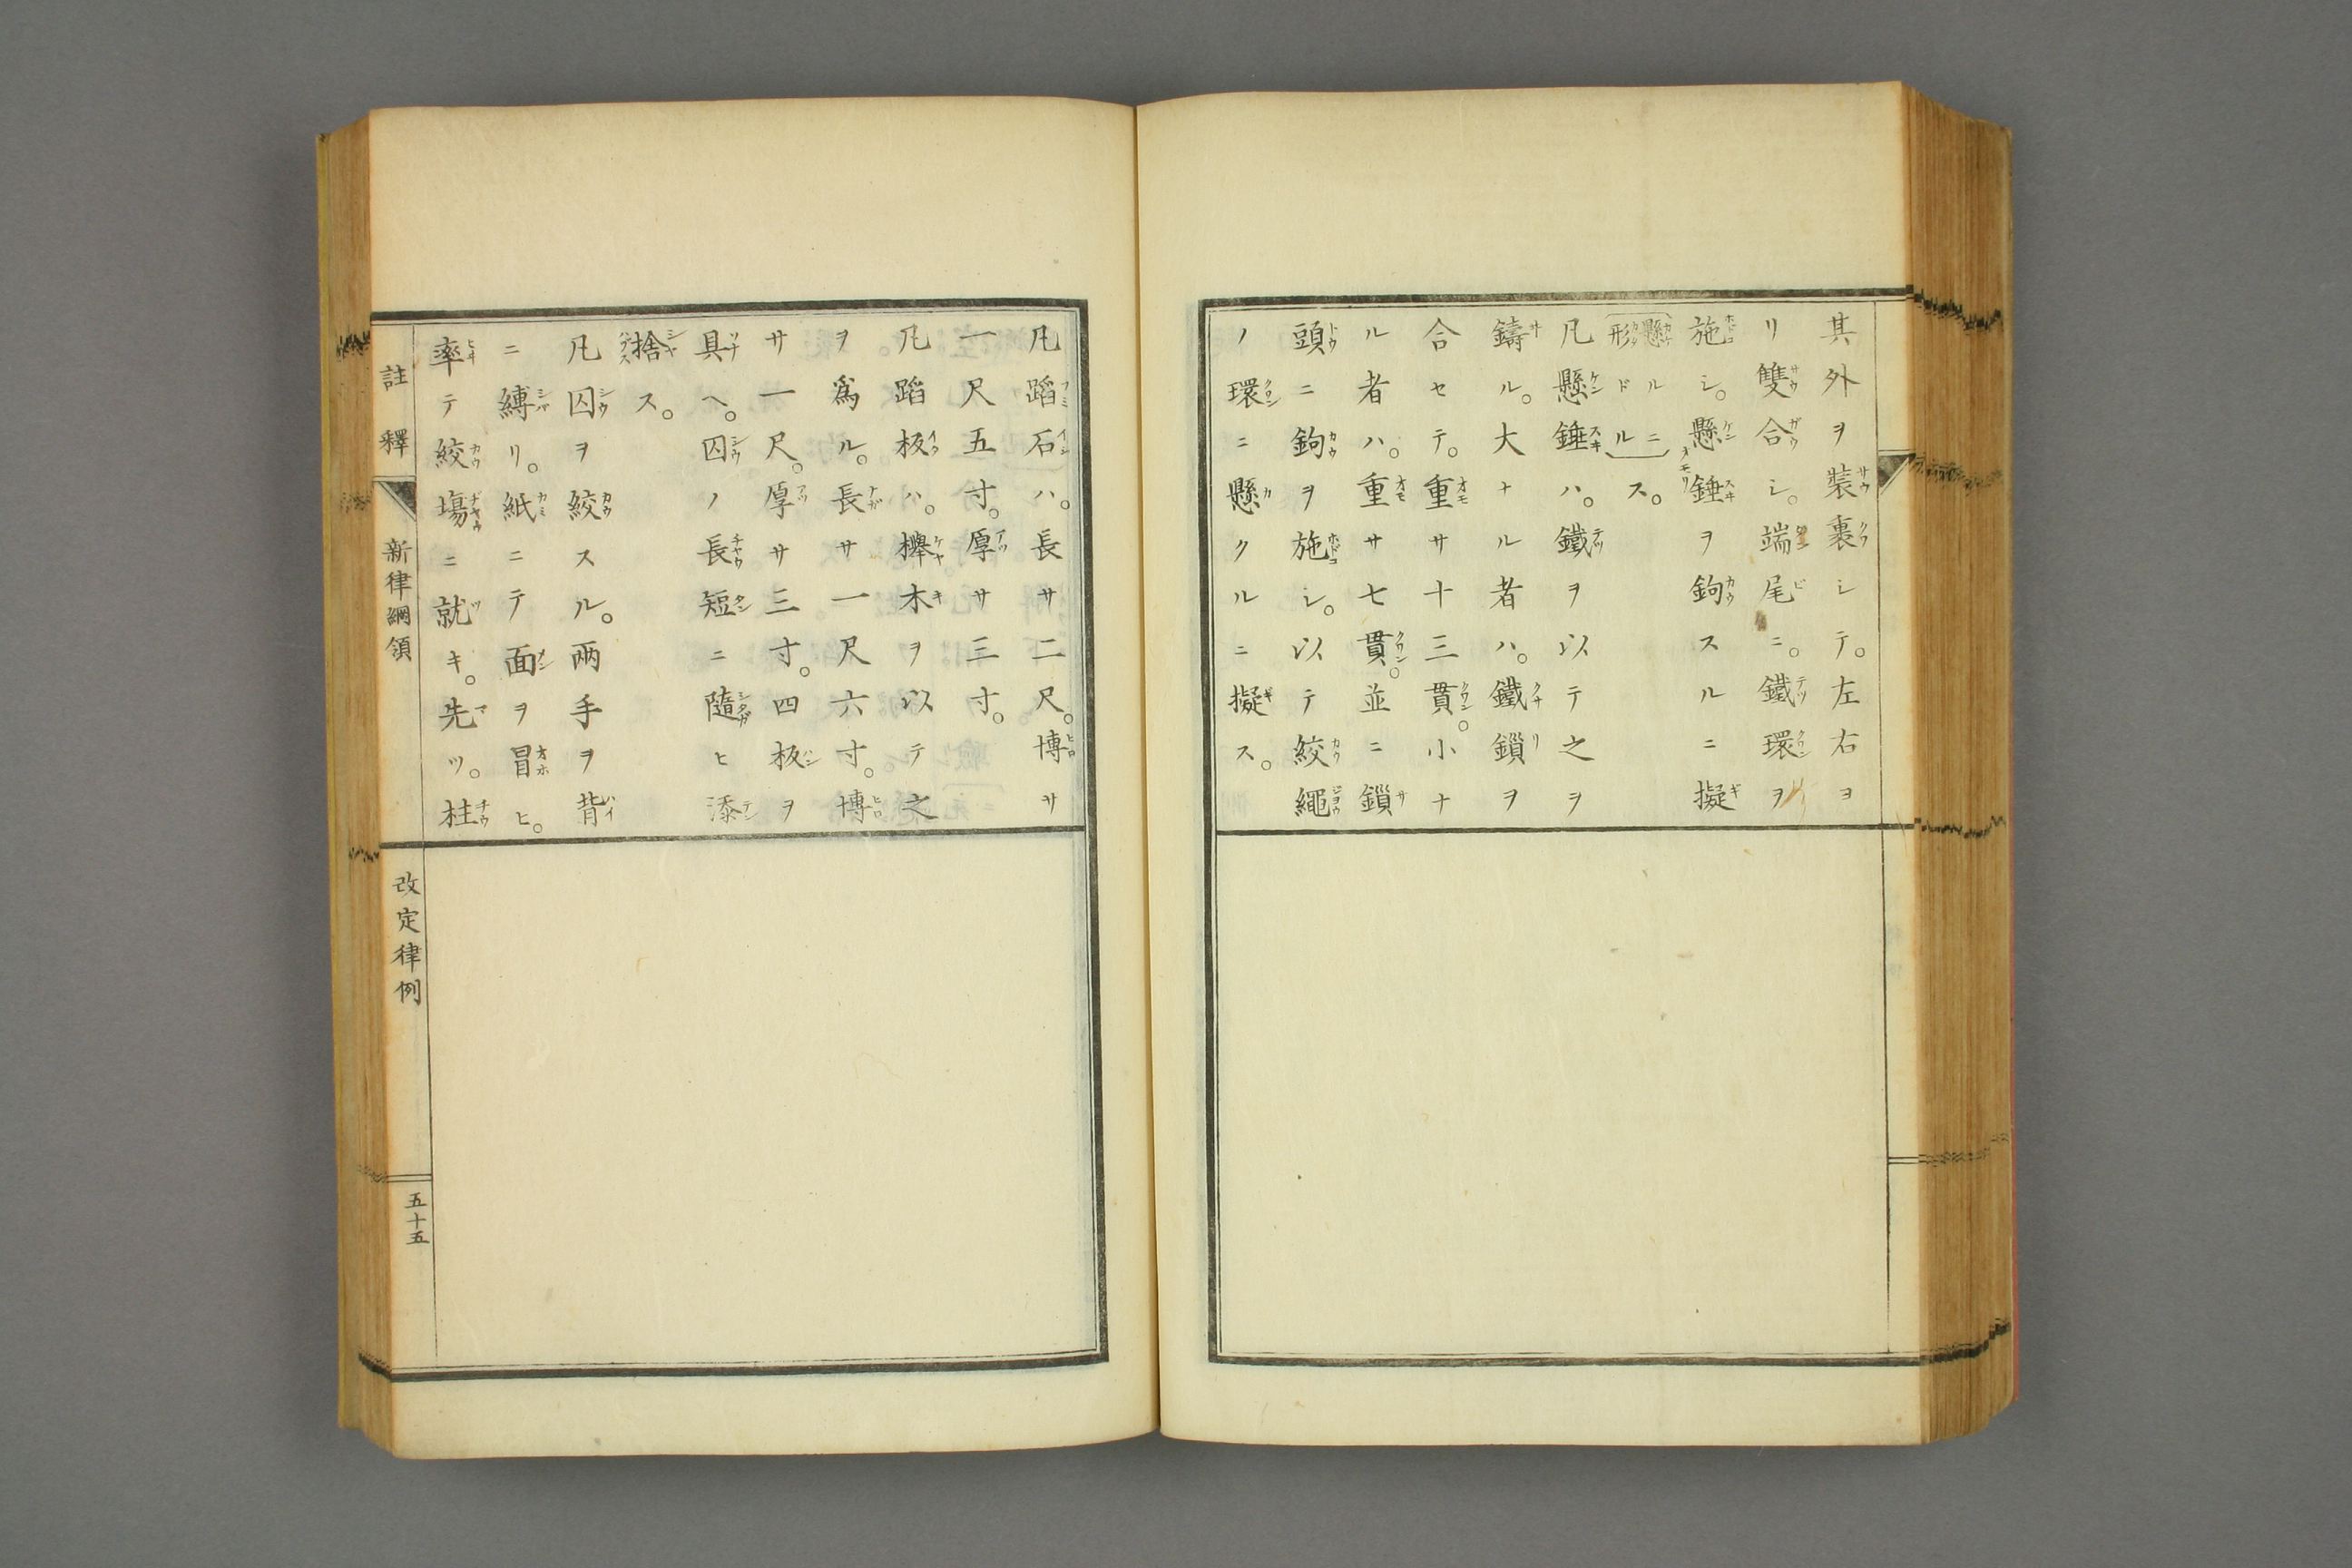 其外ヲ裝裹シテ。左右ヨ
リ雙合シ。端尾ニ。鐵環ヲ
施シ。懸錘ヲ鉤スルニ擬
懸ルニ
形ドル
ス。
凡懸錘ハ。鐵ヲ以テ之ヲ
鑄ル。大ナル者ハ。鐵鎖ヲ
合セテ。重サ十三貫。小ナ
ル者ハ。重サ七貫。並ニ鎖
頭ニ鉤ヲ施シ。以テ絞繩
ノ環ニ懸クルニ擬ス。
凡蹈石ハ。長サ二尺。博サ
一尺五寸。厚サ三寸。
凡蹈板ハ。欅木ヲ以テ之
ヲ爲ル。長サ一尺六寸。博
サ一尺。厚サ三寸。四板ヲ
具ヘ。囚ノ長短ニ隨ヒ添
捨ス。
凡囚ヲ絞スル。兩手ヲ背
ニ縛リ。紙ニテ面ヲ冒ヒ。
率テ絞場ニ就キ。先ツ。柱
註釋 新律綱領
改定律例
五十五